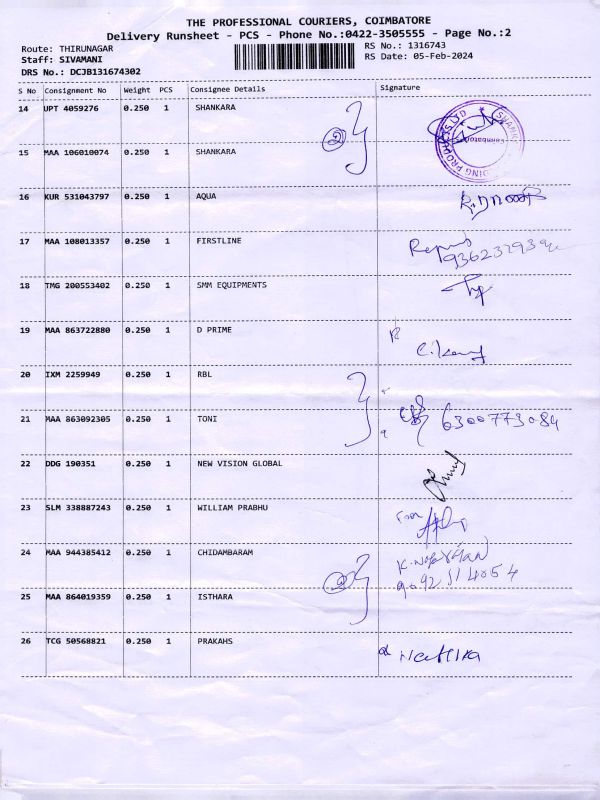 THE PROFESSIONAL COURIERS, COIMBATORE
Delivery Runsheet - PCS - Phone No.:0422-3505555 - Page No.:2
Route: THIRUNAGAR
RS No.: 1316743
Staff: SIVAMANI
RS Date: 05-Feb-2024
DRS No.: DCJB131674302
S No Consignment No Weight PCS Consignee Details Signature
14 UPT 4059276 0.250 1 SHANKARA
15 MAA 106010074 0.250 1 SHANKARA
16 KUR 531043797 0.250 1 AQUA
17 MAA 108013357 0.250 1 FIRSTLINE
18 TMG 200553402 0.250 1 SMM EQUIPMENTS
19 MAA 863722880 0.250 1 D PRIME
20 IXM 2259949 0.250 1 RBL
21 MAA 863092305 0.250 1 TONI 6300773084
22 DDG 190351 0.250 1 NEW VISION GLOBAL
23 SLM 338887243 0.250 1 WILLIAM PRABHU
24 MAA 944385412 0.250 1 CHIDAMBARAM
25 MAA 864019359 0.250 1 ISTHARA
26 TCG 50568821 0.250 1 PRAKAHS